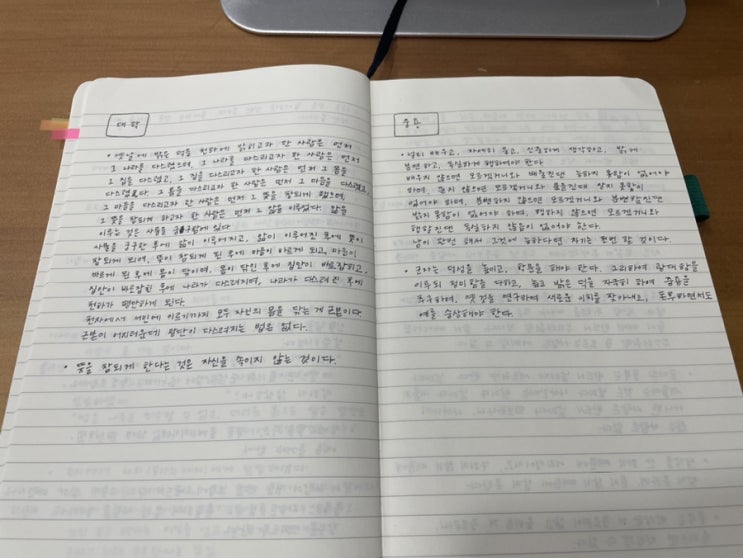 대학
• 옛날에 밝은 덕을 천하에 밝히고자 한 사람은 먼저
그 나라를 다스렸으며, 그 나라를 다스리고자 한 사람은 먼저
그 집을 다스렸고, 그 집을 다스리고자 한 사람은 먼저 그 몸을
다스렸다. 그 몸을 다스리고자 한 사람은 먼저 그 마음을 다스렸고,
그 마음을 다스리고자 한 사람은 먼저 그 뜻을 참되게 했으며,
그 뜻을 참되게 하고자 한 사람은 먼저 그 앎을 이루었다. 앎을
이루는 것은 사물을 궁구함에 있다
사물을 궁구한 후에 앎이 이루어지고, 앎이 이루어진 후에 뜻이
참되게 되며, 뜻이 참되게 된 후에 마음이 바르게 되고, 마음이
바르게 된 후에 몸이 닦이며, 몸이 닦인 후에 집안이 바로잡히고,
집안이 바로잡힌 후에 나라가 다스려지며, 나라가 다스려진 후에
천하가 평안하게 된다.
천자에서 서민에 이르기까지 모두 자신의 몸을 닦는 게 근본이다.
근본이 어지러운데 끝단이 다스려지는 법은 없다.
• 뜻을 참되게 한다는 것은 자신을 속이지 않는 것이다.
중용
• 널리 배우고, 자세히 묻고, 신중하게 생각하고, 밝게
분변하고, 독실하게 행하여야 한다
배우지 않으면 모르겠거니와 배울진댄 능하지 못함이 없어야
하며, 묻지 않으면 모르겠거니와 물을진대 알지 못함이
없어야 하며, 분변하지 않으면 모르겠거니와 분변할진댄
밝지 못함이 없어야 하며, 행하지 않으면 모르겠거니와
행할진댄 독실하지 않음이 없어야 한다.
남이 한번 해서 그것에 능하다면 자기는 백번 할 것이다.
• 군자는 덕성을 높이고, 학문을 해야 한다. 그리하여 광대함을
이루되 정미함을 다하고, 높고 밝은 덕을 지극히 하여 중용을
추구하며, 옛 것을 연구하여 새로운 이치를 찾아내고, 돈독하면서도
예를 숭상해야 한다.